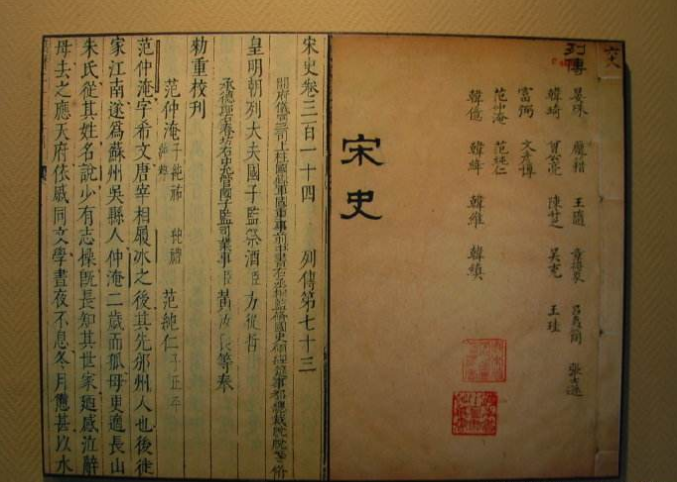 列傳
晏殊 龐籍 王隨 章得象 呂夷簡 張士遜
韓琦 曾公亮 陳升之 吳充 王珪
富弼 文彥博
范仲淹 范純仁
韓億 韓絳 韓維 韓縝
宋史
宋史卷三百一十四 列傳第七十三
開府儀同三司上柱國
皇明朝列大夫國子監祭酒臣方從哲
承德郎右春坊右中允管國子監司業事臣黃汝良等奉
勅重校刊
范仲淹子純祐 純禮 純粹 范純仁子正平
范仲淹字希文唐宰相履冰之後其先邠州人也後徙
家江南遂為蘇州吳縣人仲淹二歲而孤母更適長山
朱氏從其姓名說少有志操既長知其世家迺感泣辭
母去之應天府依戚同文學晝夜不息冬月憊甚以水